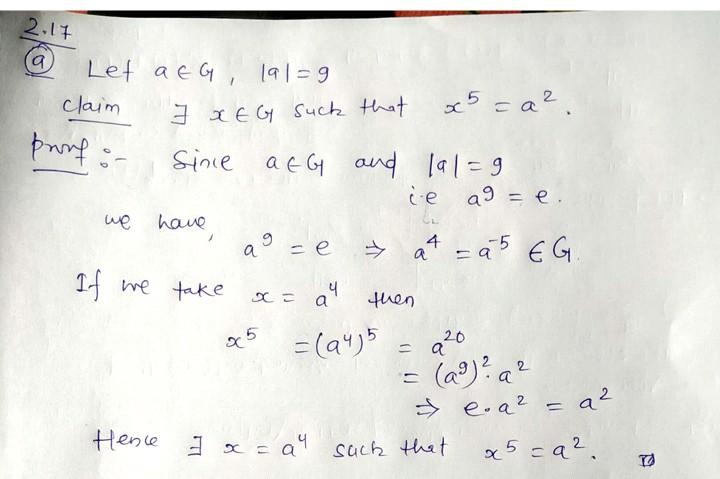 2.17
ⓐ Let a ∈ G, |a| = 9
claim ∃ x ∈ G such that x⁵ = a².
Proof :- Since a ∈ G and |a| = 9
i.e a⁹ = e.
we have,
a⁹ = e ⇒ a⁴ = a⁻⁵ ∈ G.
If we take x = a⁴ then
x⁵ = (a⁴)⁵ = a²⁰
= (a⁹)². a²
⇒ e. a² = a²
Hence ∃ x = a⁴ such that x⁵ = a².